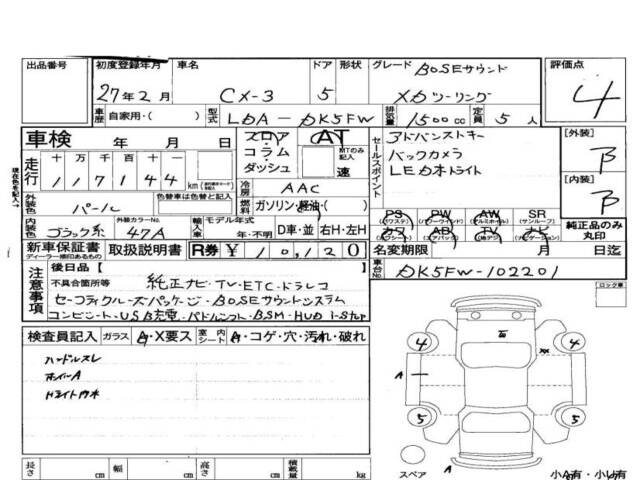 出品番号 初度登録年月 車名 ドア 形状 グレード BOSEサウンド 評価点
27年2月 CX-3 5 XDツーリング 4
車歴 自家用・( ) 型式 LDA-DK5FW 排気量 1500cc 定員 5人
車検 年 月 日 フロア コラム ダッシュ AT MTのみ記入 速
セールスポイント アドバンストキー
バックカメラ
LEDオートライト
[外装] B
[内装] B
走行 十万千百十一
117144 km
冷房 AAC
色替車は色替前を記入
外装色 パール 燃料 ガソリン・軽油・( )
内装色 ブラック系 外装カラーNo. 47A 輸入車 モデル年式 年・不明 D車・並 右H・左H
PS (パワステ) PW (パワーウインド) AW (アルミホイル) SR (サンルーフ)
カワ AB (エアバッグ) TV ナビ
純正品のみ丸印
新車保証書 ディーラー捺印あるもの 取扱説明書 R券 ¥10,120 名変期限 月 日迄
現在色を記入。
注意事項 後日品【 】
不具合箇所等 純正ナビ・TV・ETC・ドラレコ
セーフティクルーズパッケージ・BOSEサウンドシステム
コンビシート・USB充電・パドルシフト・BSM・HUD i-stop
車台No. DK5FW-102201
ロック車
検査員記入 ガラス A・X要ス 室内シート A・コゲ・穴・汚れ・破れ
ハンドルスレ
ホイールA
4 4
A
5 5
スペア A
長さ cm 幅 cm 高さ cm 積載量 kg
小A有・小U有